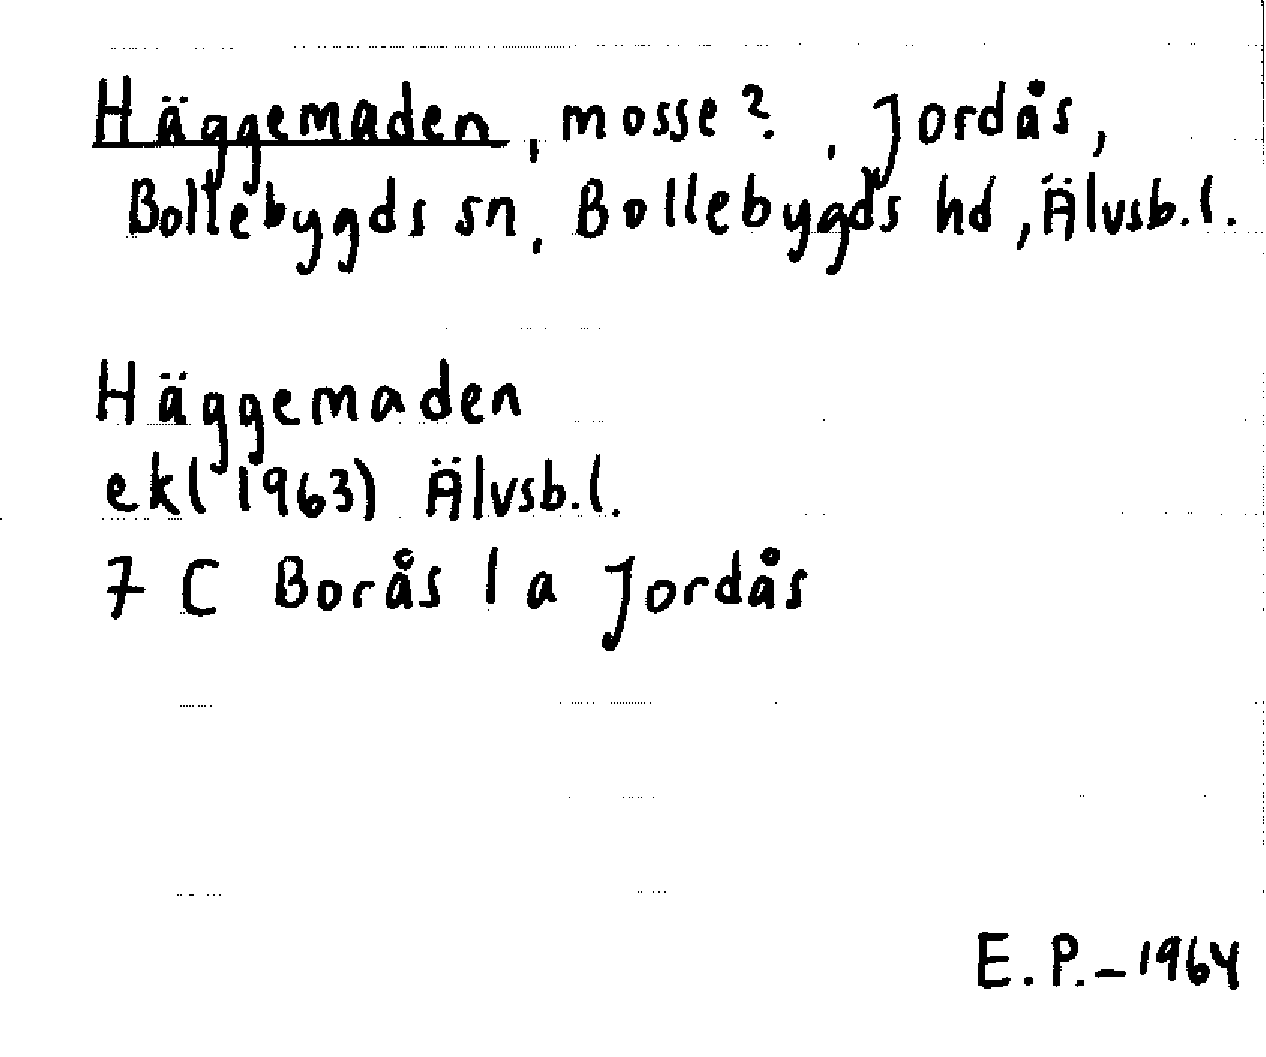 Häggemaden, mosse?, Jordås,
Bollebygds sn, Bollebygds hd, Älvsb.l.
Häggemaden
ekl 1963) Älvsb.l.
7 C Borås 1 a Jordås
E.P.-1964